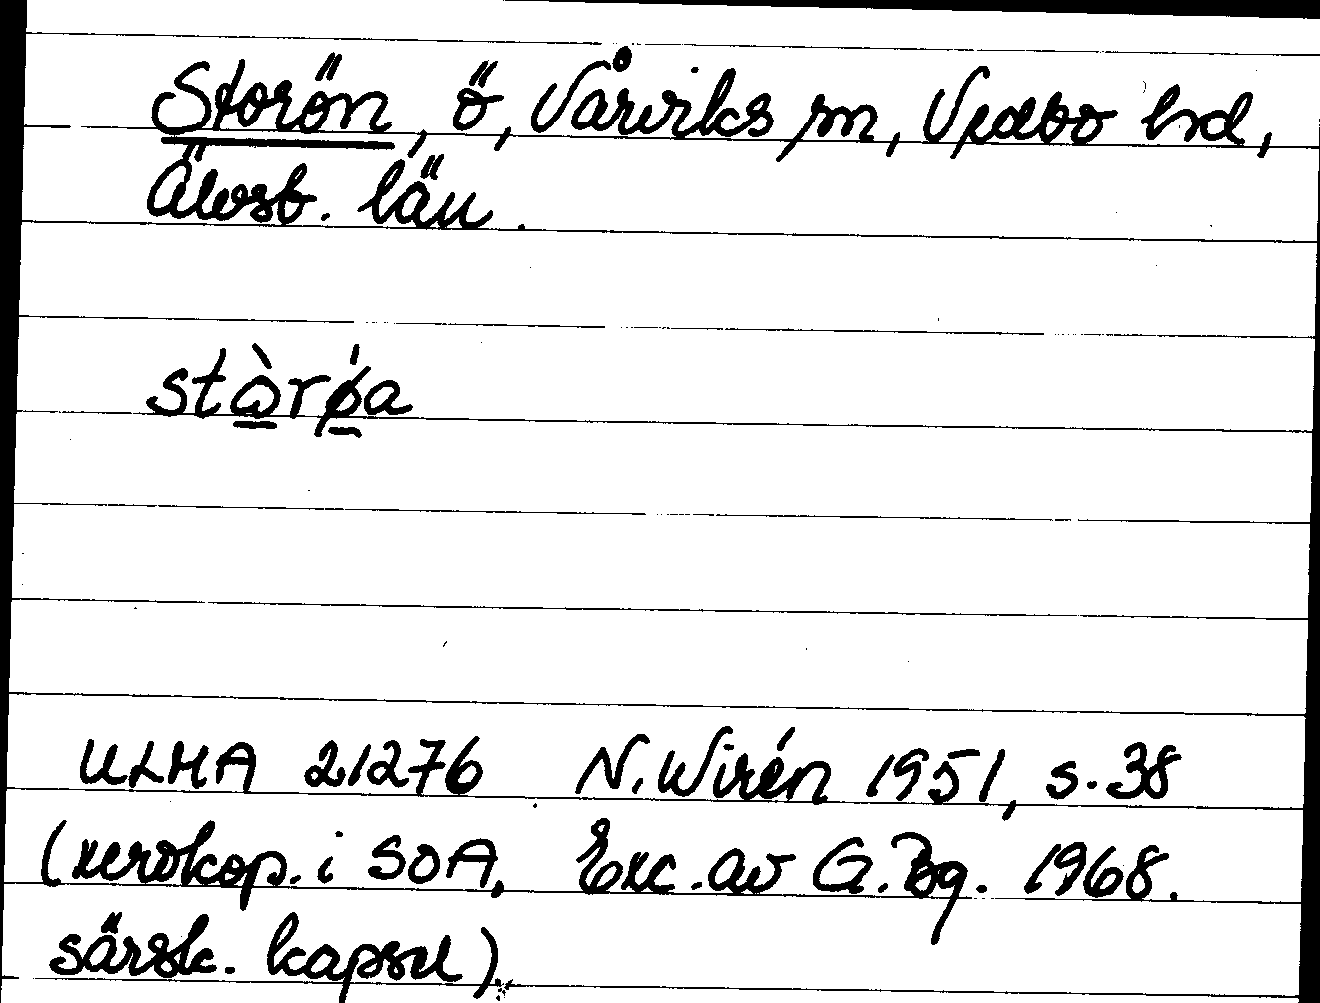 Storön, ö, Vårviks sn, Vedbo hd,
Älvsb. län.
stὼ̲rǿ̲a
ULMA 21276 N. Wirén 1951, s. 38
(xerokop. i SOA, Exc. av G. Bg. 1968.
särsk. kapsel).